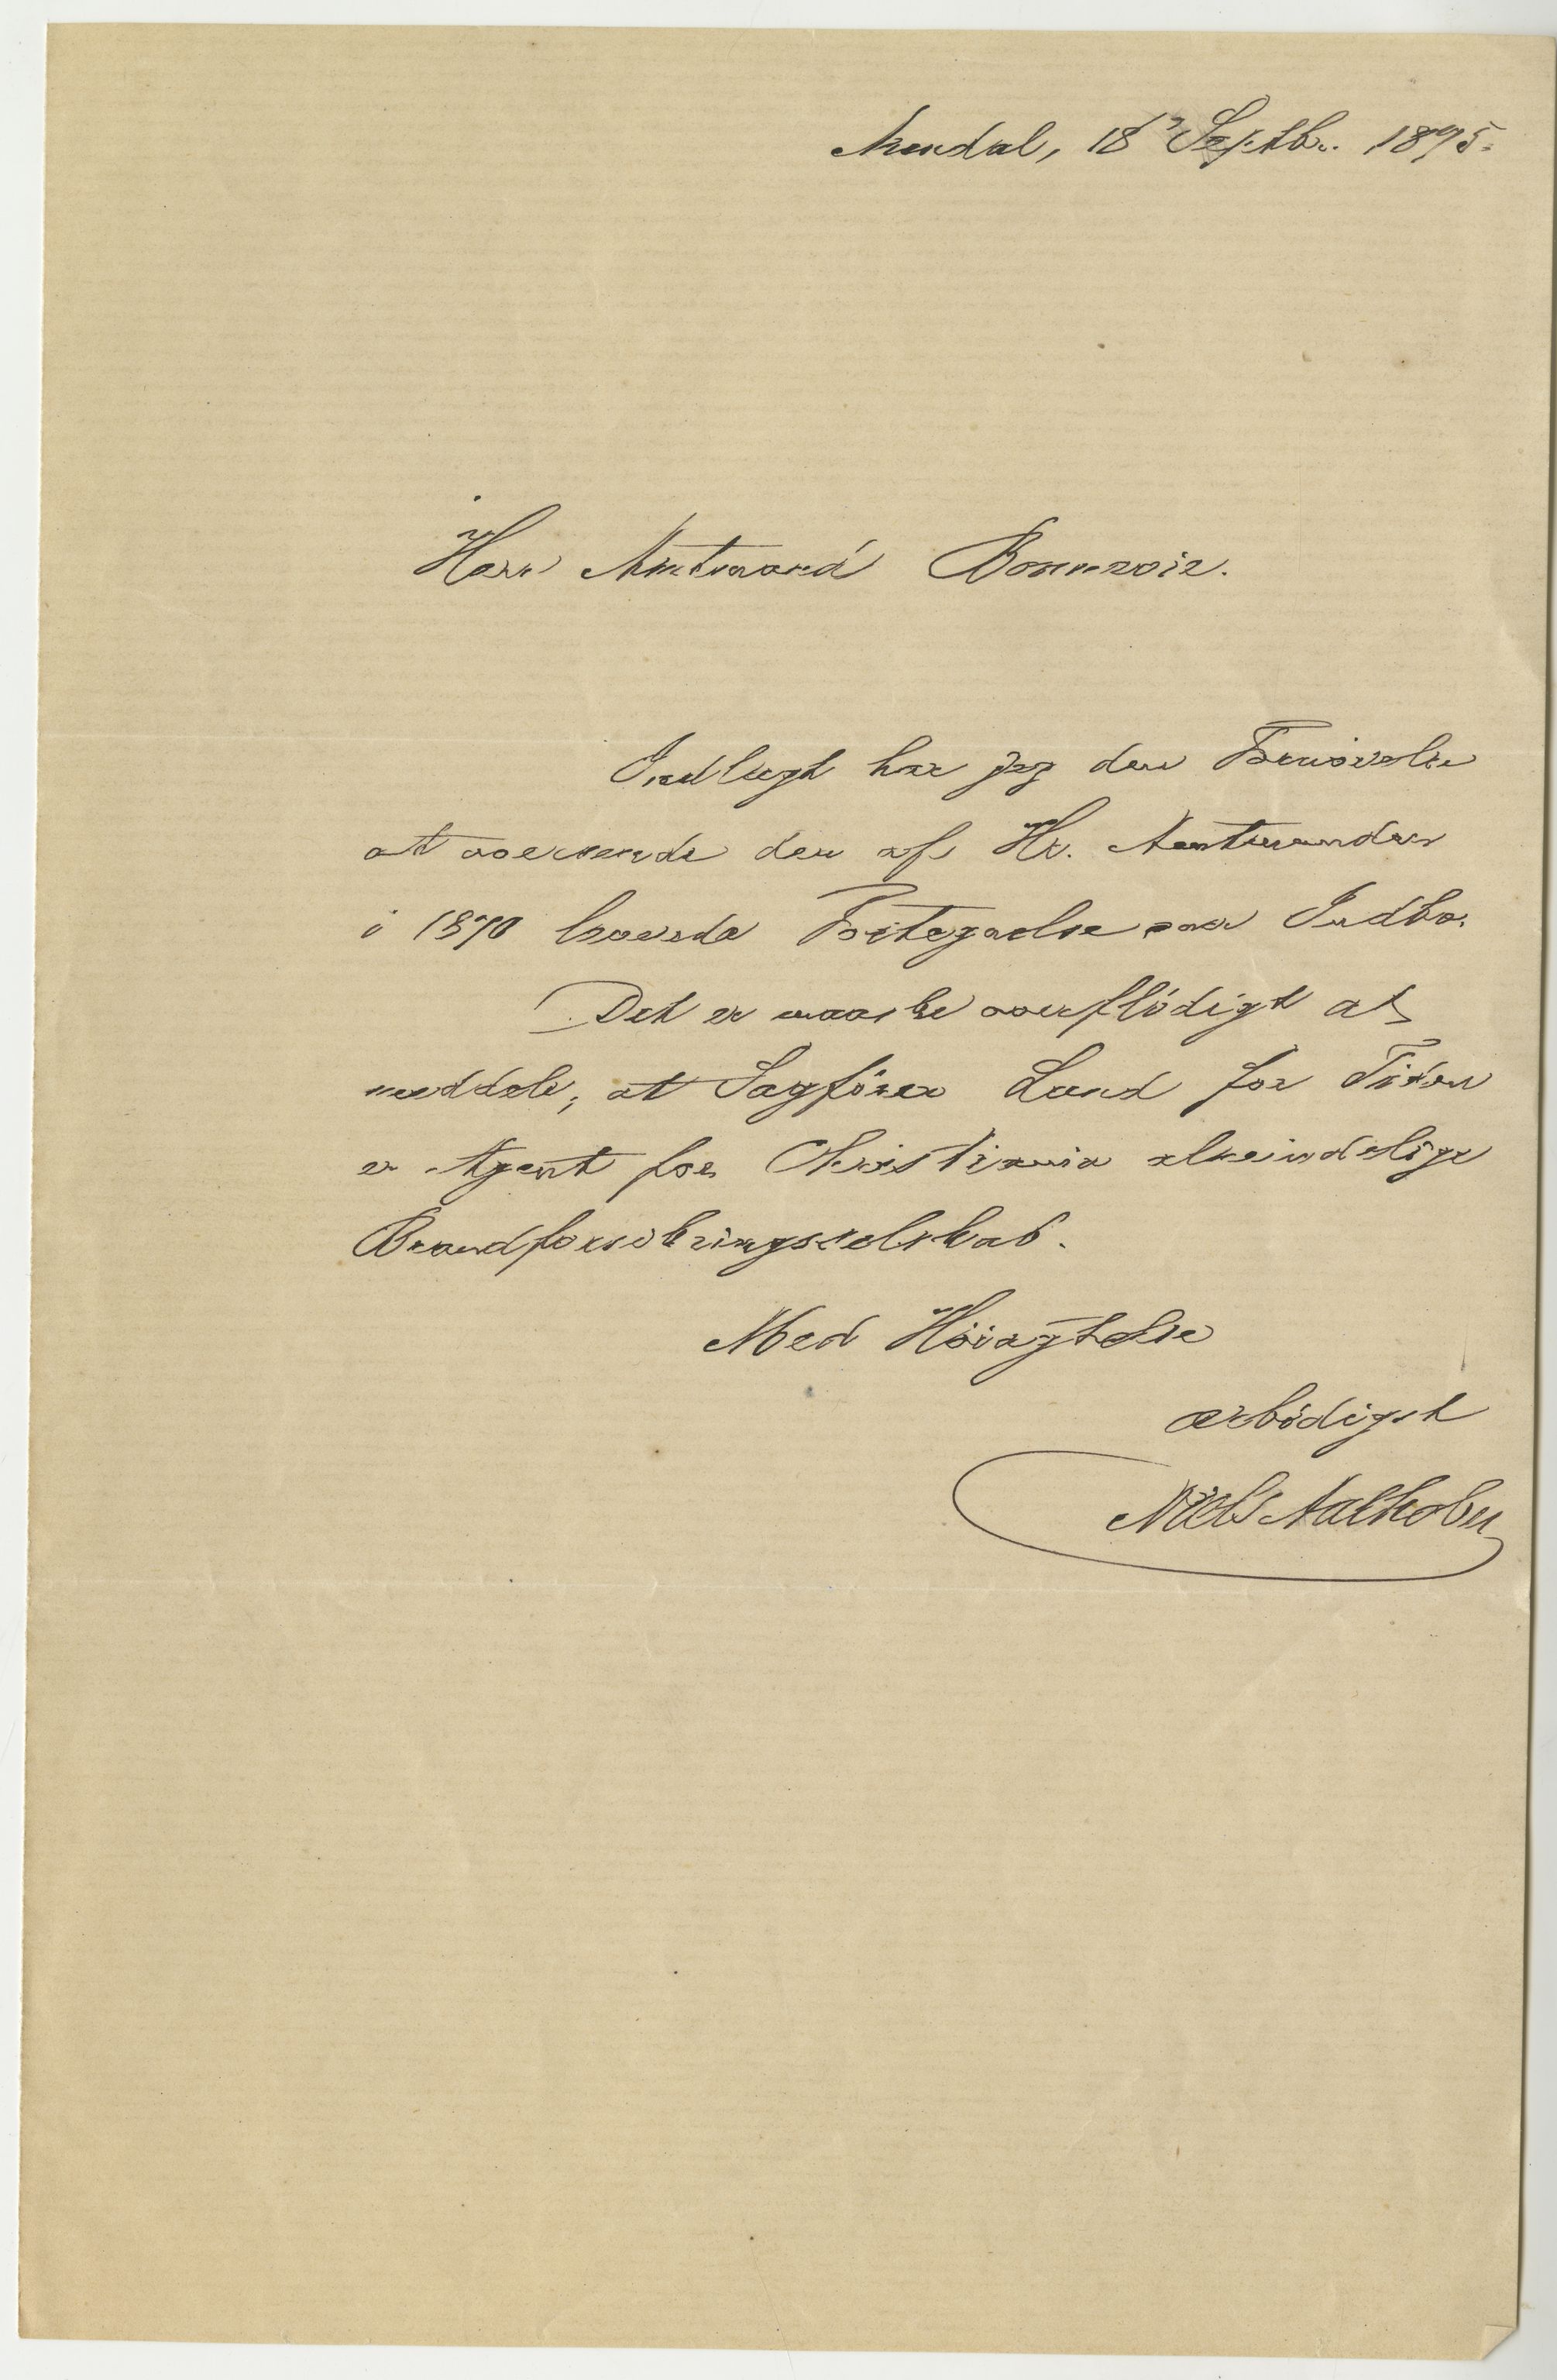 Arendal, 18' Septbr. 1895.
Herr Amtmand Bonnevie.
Indlagt har jeg den Fornøielse
at oversende den af Hr. Amtmanden
i 1870 Fortegnelse over Indbo.
Det er maaske overflödigt at
meddele, at Sagförer Lund for Tiden
er Agent for Christiania almindelige
Brandforsikringsselskab.
Med Höiagtelse
ærbödigst
Niels Aalholm